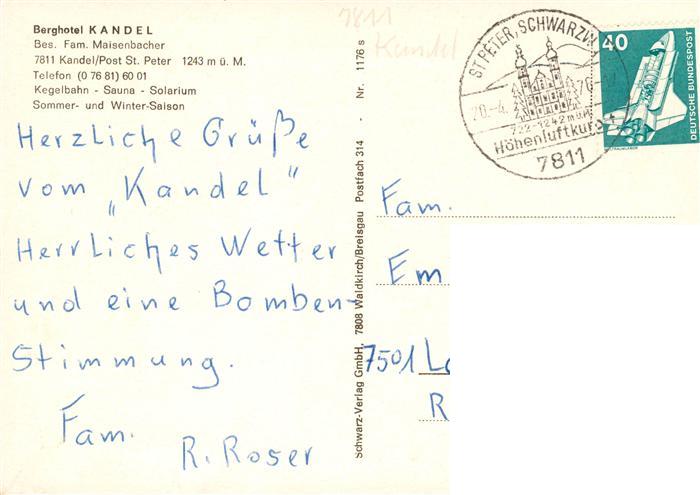 Berghotel KANDEL
Bes. Fam. Maisenbacher
7811 Kandel/Post St. Peter 1243 m ü. M.
Telefon (0 76 81) 60 01
Kegelbahn - Sauna - Solarium
Sommer- und Winter-Saison
Herzliche Grüße
vom „Kandel"
Herrliches Wetter
und eine Bomben-
Stimmung.
Fam.
R. Roser
Schwarz-Verlag GmbH, 7808 Waldkirch/Breisgau Postfach 314 - Nr. 1176 s
7811
Kandel
ST. PETER, SCHWARZW
20.-4.
722-1242 m ü. M
Höhenluftkurort
7811
40
DEUTSCHE BUNDESPOST
Fam.
Em
7501 L
R